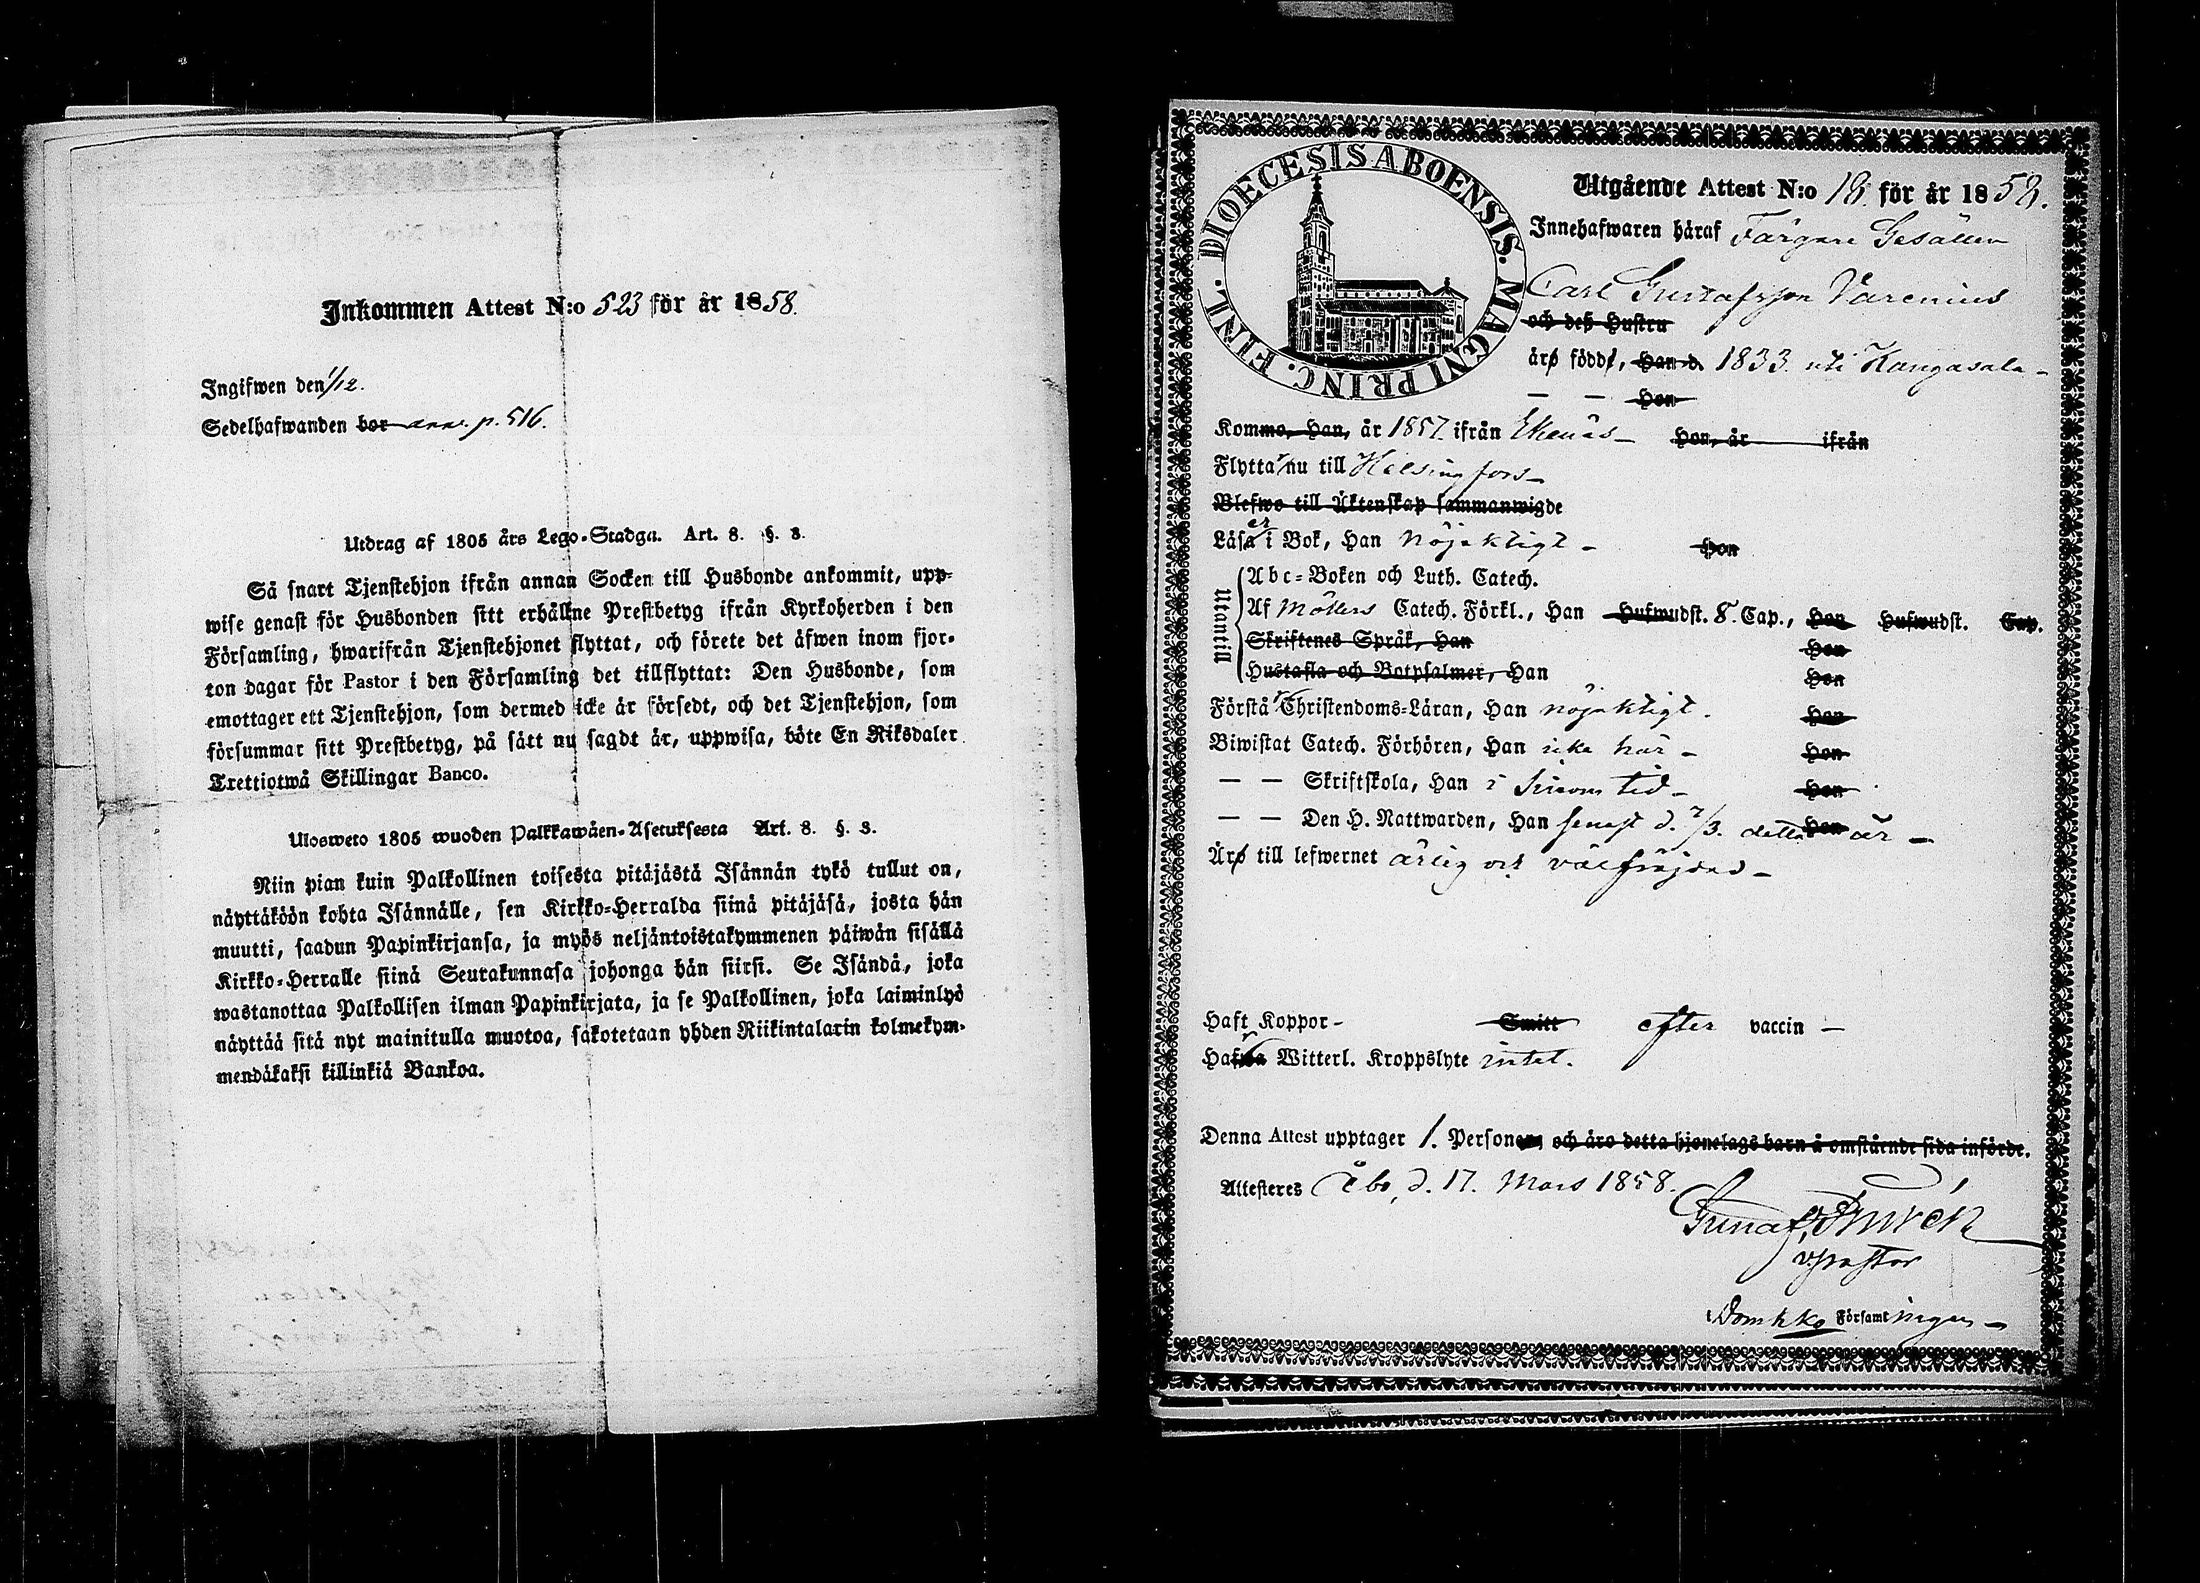 Inkommen Attest N:o 523 för år 1858.
Ingifwen den 1/12.
Sedelhafwanden bor ann. p. 516.
Utdrag af 1805 års Lego-Stadga. Art. 8. §. 3.
Så snart Tjenstehjon ifrån annan Socken till Husbonde ankommit, upp-
wise genast för Husbonden sitt erhållne Prestbetyg ifrån Kyrkoherden i den
Församling, hwarifrån Tjenstehjonet flyttat, och förete det äfwen inom fjor-
ton dagar för Pastor i den Församling det tillflyttat: Den Husbonde, som
emottager ett Tjenstehjon, som dermed icke är försedt, och det Tjenstehjon, som
försummar sitt Prestbetyg, på sätt nu sagdt är, uppwisa, böte En Riksdaler
Trettiotwå Skillingar Banco.
Ulosweto 1805 wuoden Palkkawäen-Asetuksesta Art. 8. §. 3.
Niin pian kuin Palkollinen toisesta pitäjästä Isännän tykö tullut on,
näyttäköön kohta Isännälle, sen Kirkko-Herralda siinä pitäjäsä, josta hän
muutti, saadun Papinkirjansa, ja myös neljäntoistakymmenen päiwän sisällä
Kirkko-Herralle siinä Seurakunnasa johonga hän siirsi. Se Isändä, joka
wastanottaa Palkollisen ilman Papinkirjata, ja se Palkollinen, joka laiminlyö
näyttää sitä nyt mainitulla muotoa, sakotetaan yhden Riikintalarin kolmekym-
mendäkaksi killinkiä Bankoa.
DIOECESIS ABOENSIS. MAGNI PRINC. FINL.
Utgående Attest N:o 18. för år 1858.
Innehafwaren häraf Färgare Gesällen
Carl Gustafsson Varenius
och deß Hustru
äro födde, Han d. 1833. uti Kangasala -
— — Hon
Komma, Han, år 1857. ifrån Ekenäs - Hon, år ifrån
Flytta nu till Helsingfors -
Blefwo till Äktenskap sammanwigde
Läsaer i Bok, Han nöjaktigt - Hon
Utantill
Abc-Boken och Luth. Catech.
Af Möllers Catech. Förkl., Han Hufwudst. 8. Cap., Hon Hufwudst. Cap.
Skriftenes Språk, Han Hon
Hustafla och Botpsalmer, Han Hon
Förstår Christendoms-Läran, Han nöjaktigt. Hon
Biwistat Catech. Förhören, Han icke här - Hon
— — Skriftskola, Han i sinom tid - Hon
— — Den H. Nattwarden, Han senast d. 7/3. detta Hon år -
Äro till lefwernet ärlig och välfräjdad -
Haft Koppor - Smitt efter vaccin -
Hafwa Witterl. Kroppslyte intet.
Denna Attest upptager 1. Personer, och äro detta hjonelags barn å omstående sida införde.
Attesteres Åbo, d. 17. Mars 1858.
v. pastor
i Domkko Församlingen -